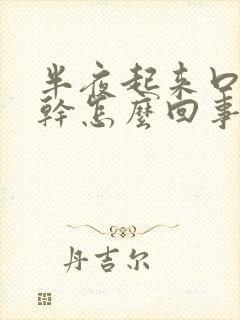 半夜起来口
幹怎麼回事
丹吉尔